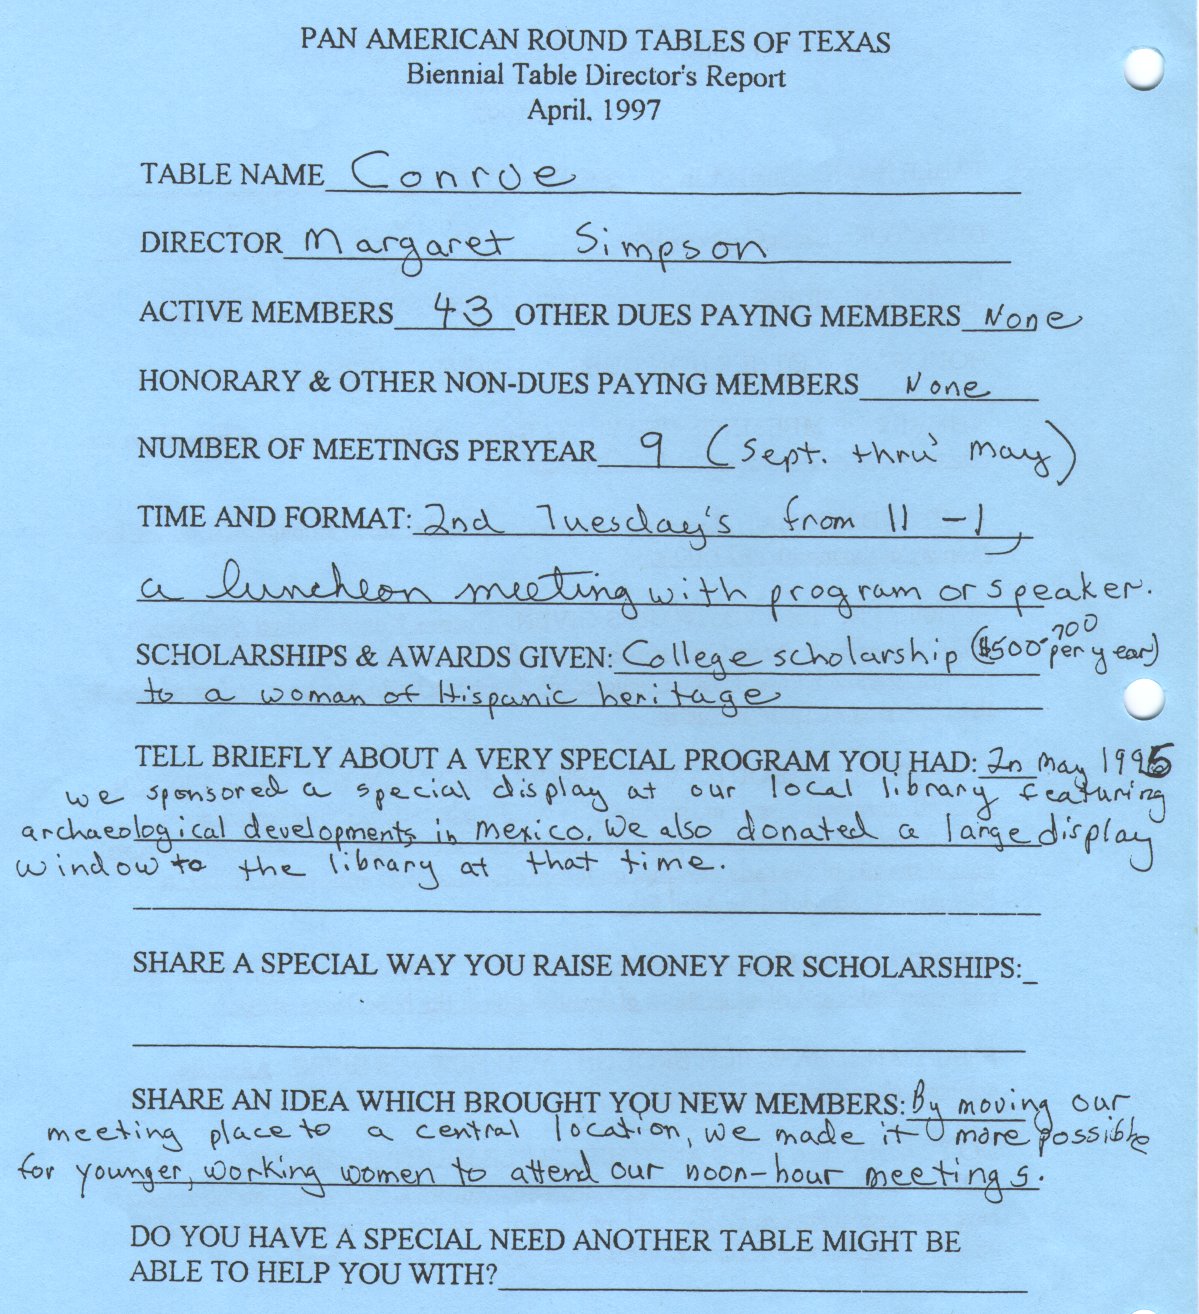 PAN AMERICAN ROUND TABLES OF TEXAS
Biennial Table Director's Report
April, 1997
TABLE NAME Conroe
DIRECTOR Margaret Simpson
ACTIVE MEMBERS 43 OTHER DUES PAYING MEMBERS None
HONORARY & OTHER NON-DUES PAYING MEMBERS None
NUMBER OF MEETINGS PERYEAR 9 (Sept. thru' May)
TIME AND FORMAT: 2nd Tuesday's from 11 - 1,
a luncheon meeting with program or speaker.
SCHOLARSHIPS & AWARDS GIVEN: College scholarship ($500-700 per year)
to a woman of Hispanic heritage
TELL BRIEFLY ABOUT A VERY SPECIAL PROGRAM YOU HAD: In May
we sponsored a special display at our local library featuring
archaeological developments in Mexico. We also donated a large display
window to the library at that time.
SHARE A SPECIAL WAY YOU RAISE MONEY FOR SCHOLARSHIPS:
SHARE AN IDEA WHICH BROUGHT YOU NEW MEMBERS: By moving our
meeting place to a central location, we made it more possible
for younger, working women to attend our noon-hour meetings.
DO YOU HAVE A SPECIAL NEED ANOTHER TABLE MIGHT BE
ABLE TO HELP YOU WITH?